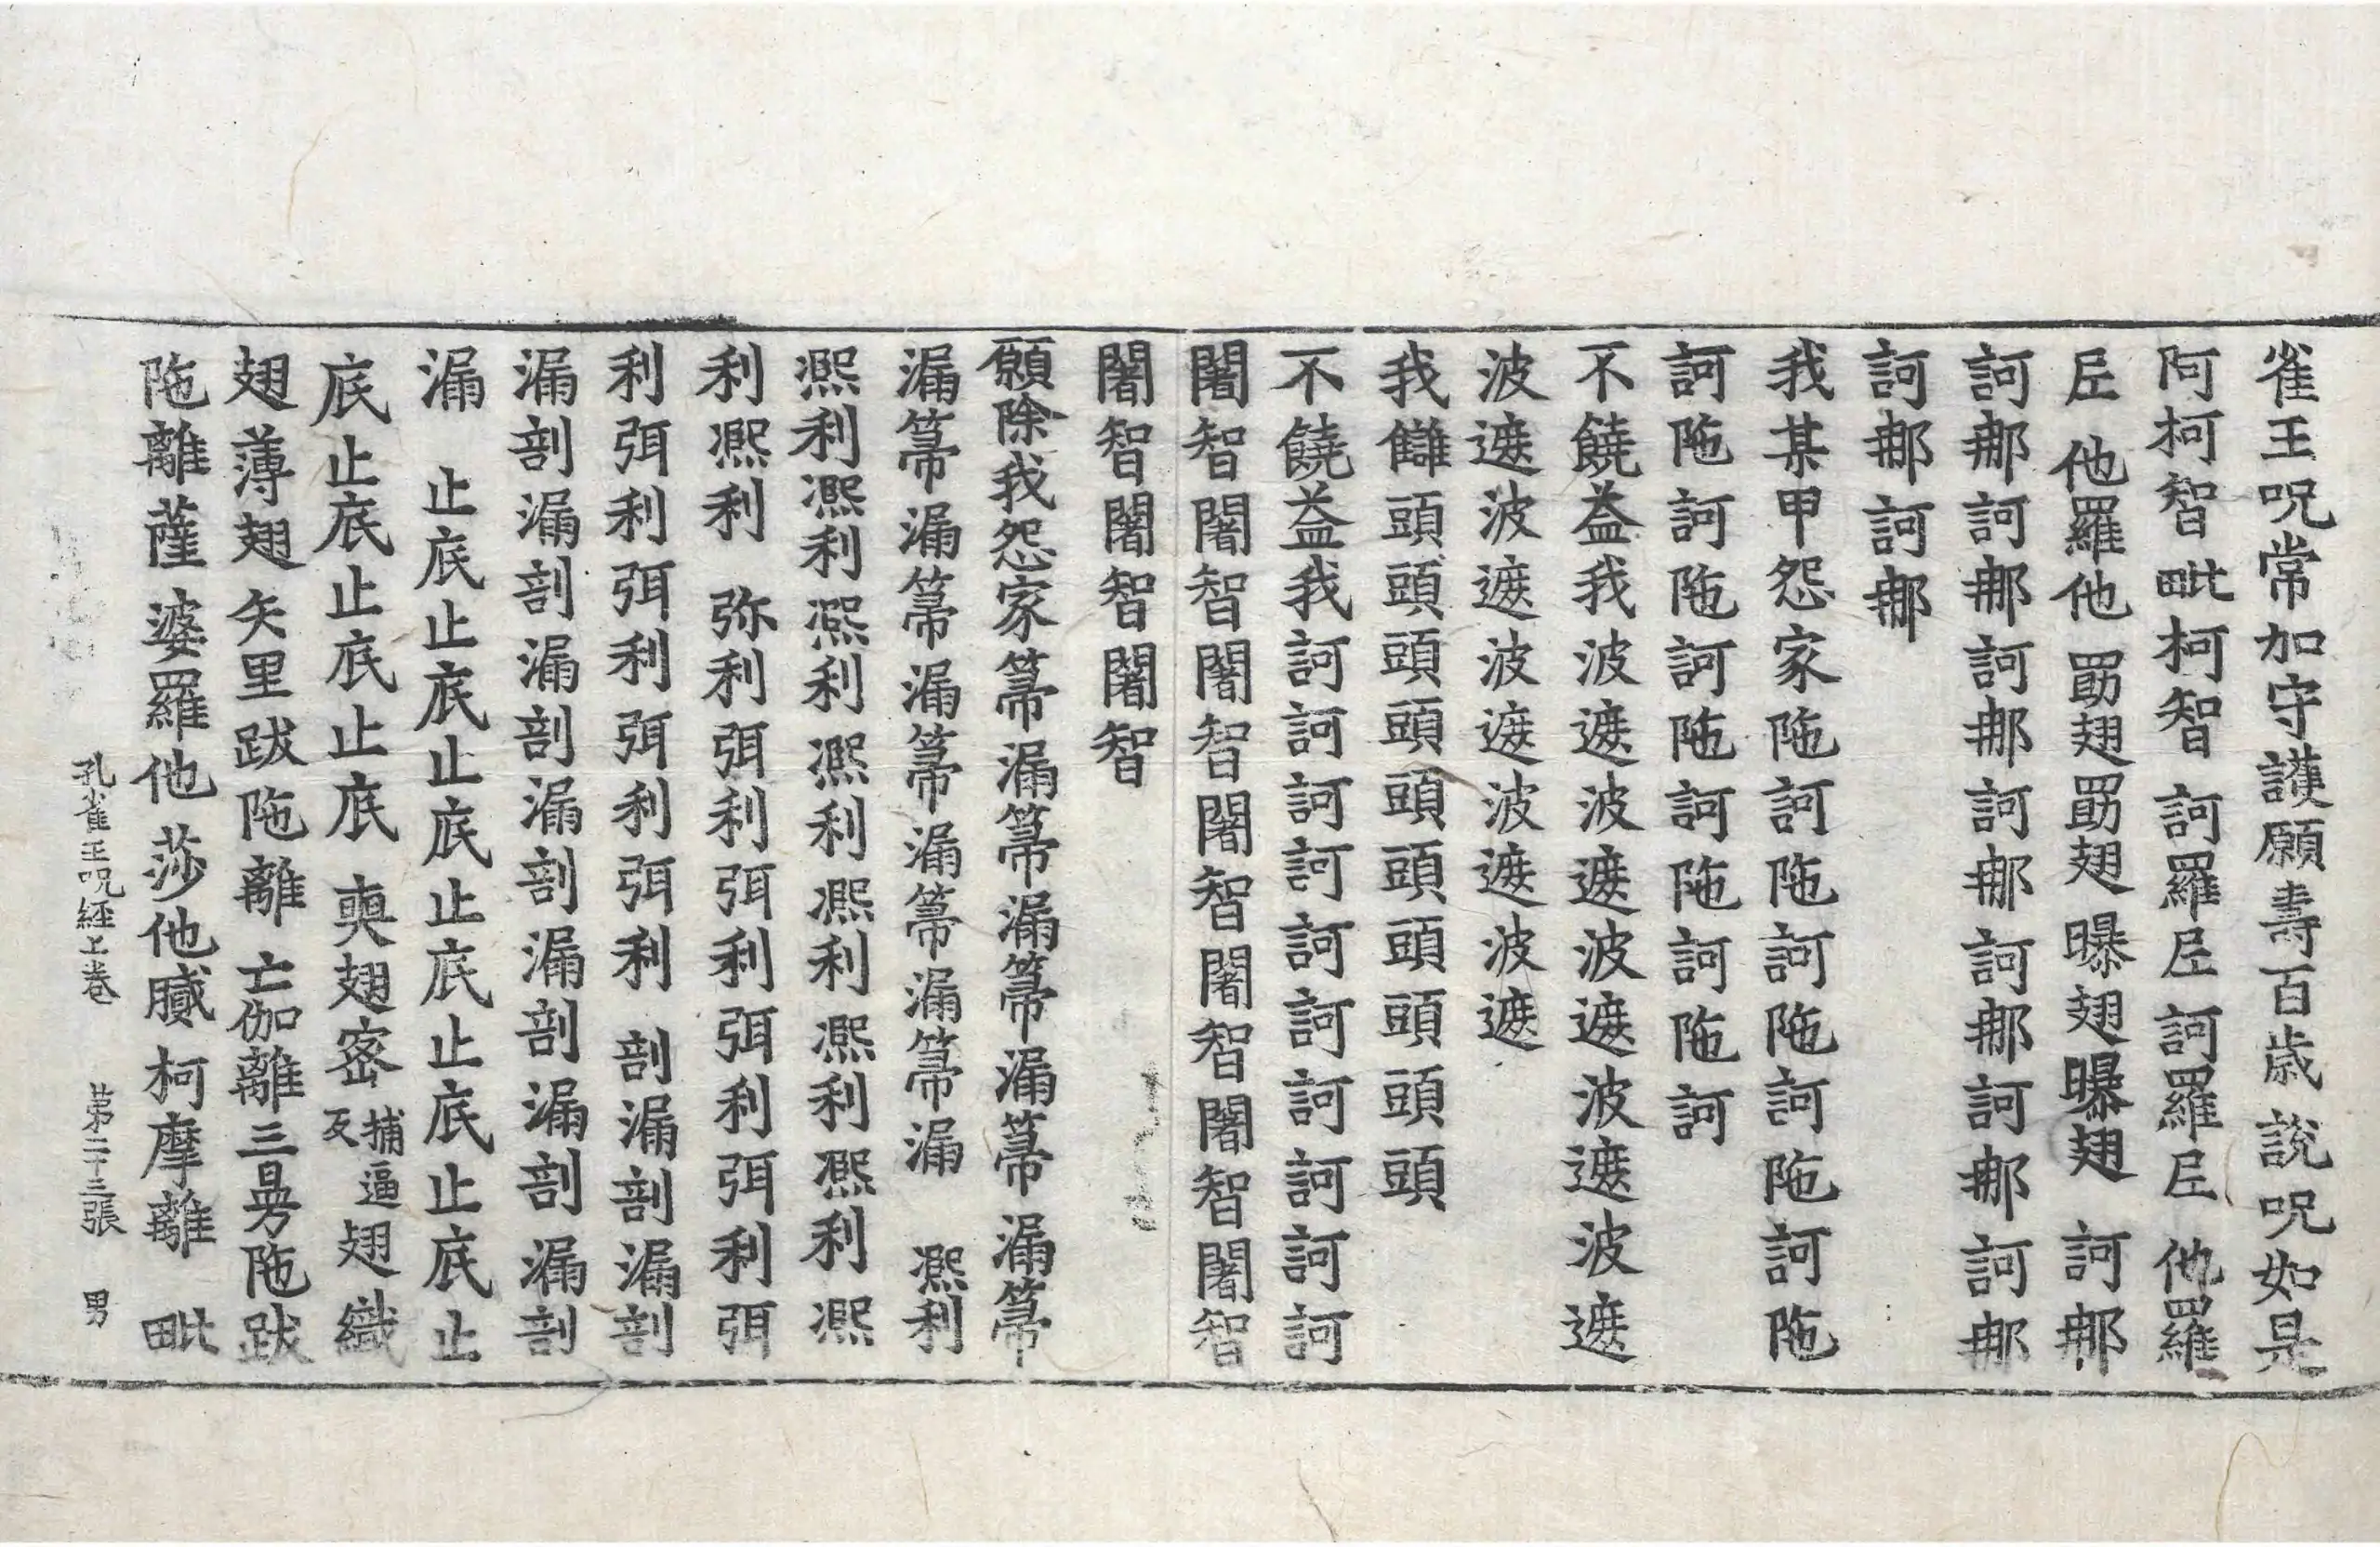 雀王呪常加守護願壽百歳說呪如是
阿柯智毗柯智 訶羅𡱝訶羅𡱝 他羅
𡱝 他羅他 勖翅勖翅曝翅曝翅 訶𨚗
訶𨚗訶𨚗訶𨚗訶𨚗訶𨚗訶𨚗訶𨚗
訶𨚗訶𨚗
我某甲怨家陁訶陁訶陁訶陁訶陁
訶陁訶陁訶陁訶陁訶陁訶
不饒益我波遮波遮波遮波遮波遮
波遮波遮波遮波遮波遮
我讎頭頭頭頭頭頭頭頭頭頭
不饒益我訶訶訶訶訶訶訶訶訶訶
闍智闍智闍智闍智闍智闍智闍智
闍智闍智闍智
願除我怨家篅漏篅漏篅漏篅漏篅
漏篅漏篅漏篅漏篅漏篅漏 凞利
凞利凞利凞利凞利凞利凞利凞利凞
利凞利 弥利弭利弭利弭利弭利弭
利弭利弭利弭利弭利 剖漏剖漏剖
漏剖漏剖漏剖漏剖漏剖漏剖漏剖
漏 止底止底止底止底止底止底止
底止底止底止底 㬰翅宻捕逼反翅織
翅薄翅矢里跋陁離亡伽離三曼陁跋
陁離薩婆羅他莎他膩柯摩離 毗
孔雀王呪經上卷 苐二十三張 男